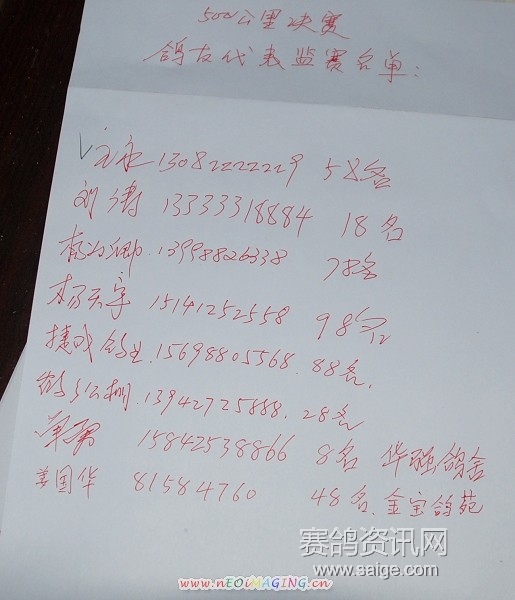 500公里决赛
鸽友代表监赛名单:
13082222229 58名
刘涛 13333318884 18名
13998826338 78名
杨天宇 15141252558 98名
捷成鸽业 15698805568. 88名,
公棚.13942725888. 28名
15842538866 8名 华强鸽舍
姜国华 81584760 48名.金宝鸽苑
赛鸽资讯网
www.saige.com
www.nEOiMAGING.cn